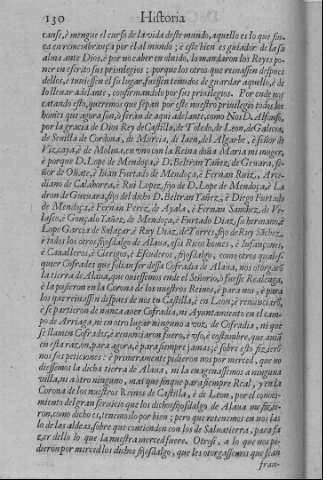 130 Historia
canse, è mengue el curso de la vida deste mundo, aquello es lo que fin-
ca en remembrança por el al mundo; è este bien es guiador de la su
alma ante Dios, è por no caher en oluido, lo mandaron los Reyes po-
ner en escrito sus priuilegios; porque los otros que reinassen despues
dellos, è tuuiessen el su lugar, fuessen tenudos de guardar aquello, è de
lo lleuar adelante, confirmandolo por sus priuilegios. Por ende nos
catando esto, queremos que sepan por este nuestro priuilegio todos los
homes que agora son, ò seràn de aqui adelante, como Nos D. Alfonso,
por la gracia de Dios Rey de Castilla, de Toledo, de Leon, de Galicia,
de Seuilla, de Cordoua, de Murcia, de Iaen, del Algarbe, è señor de
Vizcaya, è de Molina, en vno con la Reina doña Maria mi muger,
è porque D. Lope de Mendoça, è D. Beltran Yañez, de Gueuara, se-
ñor de Oñate, è Iuan Furtado de Mendoça, è Fernan Ruiz, Arce-
diano de Calahorra, è Rui Lopez, fijo de D. Lope de Mendoça, è La-
dron de Gueuara, fijo del dicho D. Beltran Yañez, è Diego Furtado
de Mendoça, è Fernan Perez, de Ayala, è Fernan Sanchez, de Ve-
lasco, è Gonçalo Yañez, de Mendoça, è Furtado Diaz, su hermano, è
Lope Garcia de Salaçar, è Ruy Diaz, de Torres, fijo de Ruy Sãchez,
è todos los otros fijosdalgo de Alaua, assi Ricos homes, è Infançones,
è Caualleros, è Clerigos, è Escuderos, fijosdalgo, como otros quales-
quier Cofrades que solian ser de la Cofradia de Alaua, nos otorgarõ
la tierra de Alaua, que ouiessemos ende el Señorio, è fuesse Realenga,
è la pusieron en la Corona de los nuestros Reinos, è para nos, è para
los que reinassen despues de nos en Castilla, è en Leon; è renunciarõ,
è se partieron de nunca auer Cofradia, ni Ayuntamiento en el cam-
po de Arriaga, ni en otro lugar ninguno a voz, de Cofradia, ni que
se llamen Cofrades; è renunciaron fuero, è vso, è costumbre, que auiã
en esta razon, para agora, è para siempre jamas; è sobre esto fizierõ
nos sus peticiones: è primeramente pidieron nos por merced, que no
diessemos la dicha tierra de Alaua, ni la enagenassemos a ninguna
villa, ni a otro ninguno, mas que finque para siempre Real, y en la
Corona de los nuestros Reinos de Castilla, è de Leon, por el conoci-
miento del gran seruicio que los dichos fijosdalgo de Alaua nos fizie-
ron, como dicho es, tenemoslo por bien; pero que retenemos en nos las
lo de las aldeas, sobre que contienden con los de Saluatierra, para fa-
zer dello lo que la nuestra merced fuere. Otrosi, a lo que nos pi-
dieron por merced los dichos fijosdalgo, que les otorgassemos que seãn
fran-